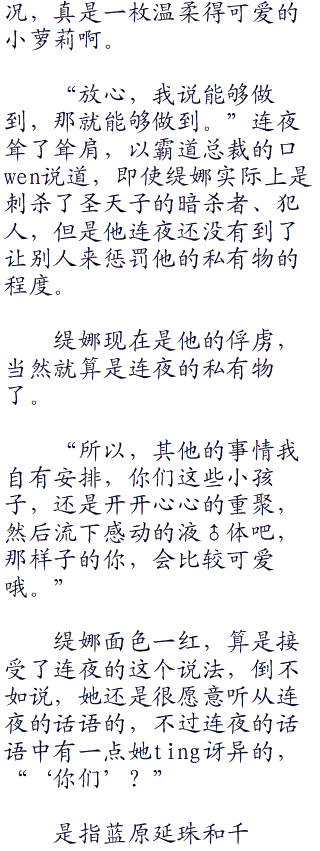 况，真是一枚温柔得可爱的
小萝莉啊。
“放心，我说能够做
到，那就能够做到。”连夜
耸了耸肩，以霸道总裁的口
wen说道，即使缇娜实际上是
刺杀了圣天子的暗杀者、犯
人，但是他连夜还没有到了
让别人来惩罚他的私有物的
程度。
缇娜现在是他的俘虏，
当然就算是连夜的私有物
了。
“所以，其他的事情我
自有安排，你们这些小孩
子，还是开开心心的重聚，
然后流下感动的液♂体吧，
那样子的你，会比较可爱
哦。”
缇娜面色一红，算是接
受了连夜的这个说法，倒不
如说，她还是很愿意听从连
夜的话语的，不过连夜的话
语中有一点她ting讶异的，
“‘你们’？”
是指蓝原延珠和千